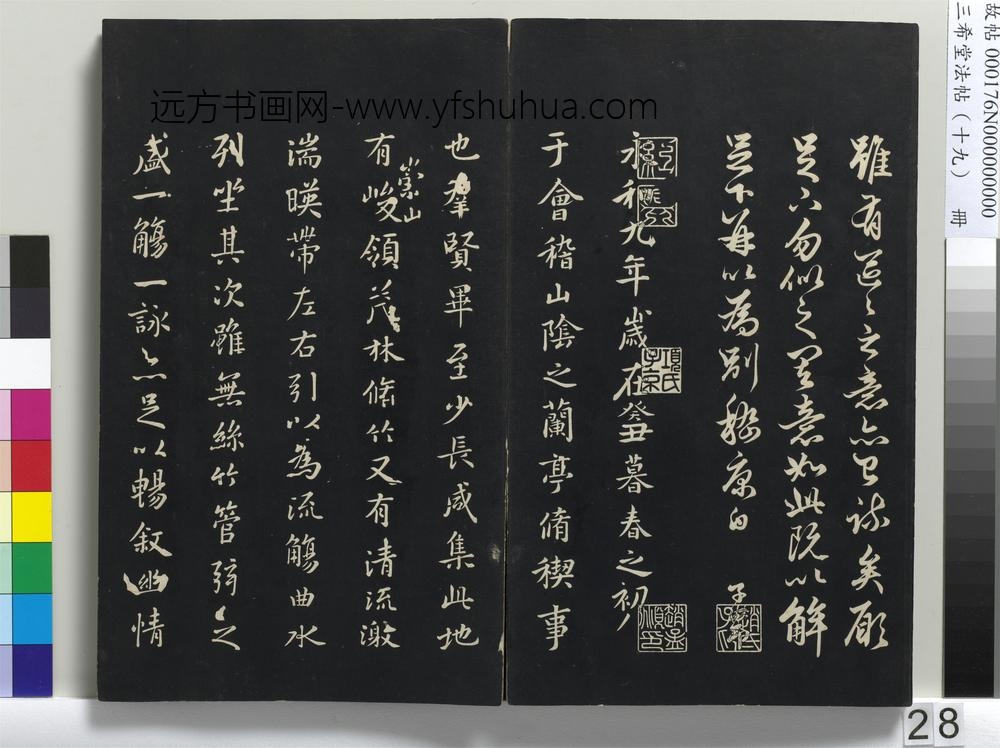 故帖 000176N000000000
三希堂法帖（十九） 冊
远方书画网-www.yfshuhua.com
雖有區〻之意亦已踈矣願
足下勿似之其意如此既以解
足下并以為別嵇康白
子昂
永和九年歲在癸丑暮春之初
項氏子京
趙孟頫印
趙氏子昂
于會稽山陰之蘭亭脩稧事
也羣賢畢至少長咸集此地
有崇山峻領茂林脩竹又有清流激
湍暎帶左右引以為流觴曲水
列坐其次雖無絲竹管弦之
盛一觴一詠亦足以暢敘幽情
28